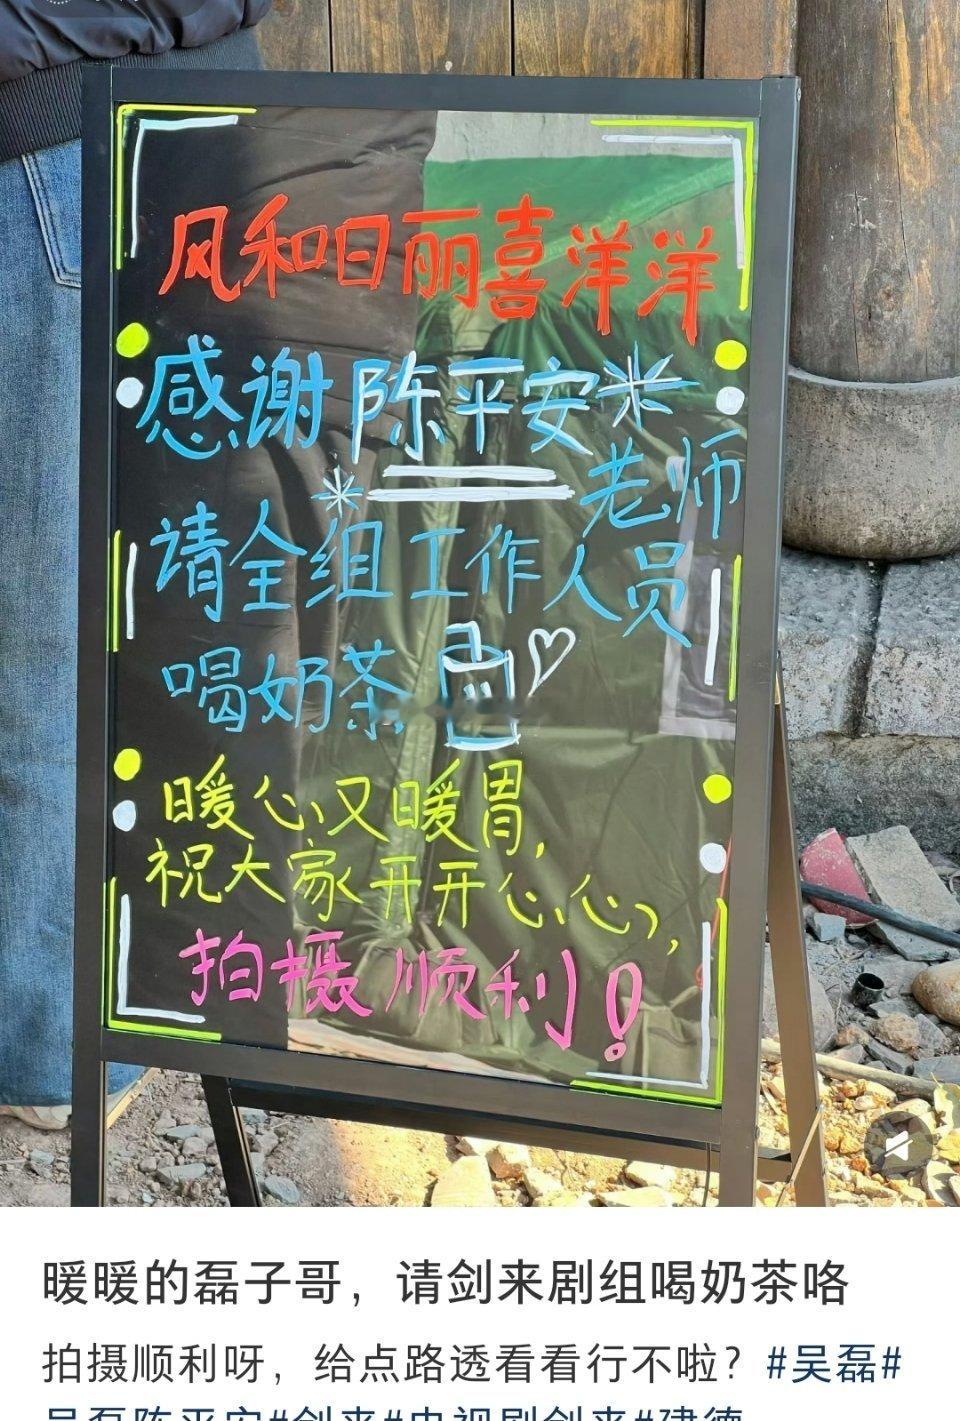 风和日丽喜洋洋
感谢陈平安
老师
请全组工作人员
喝奶茶
暖心又暖胃,
祝大家开开心心,
拍摄顺利!
暖暖的磊子哥，请剑来剧组喝奶茶咯
拍摄顺利呀，给点路透看看行不啦？#吴磊#
吴磊陈平安#剑来#电视剧剑来#建德